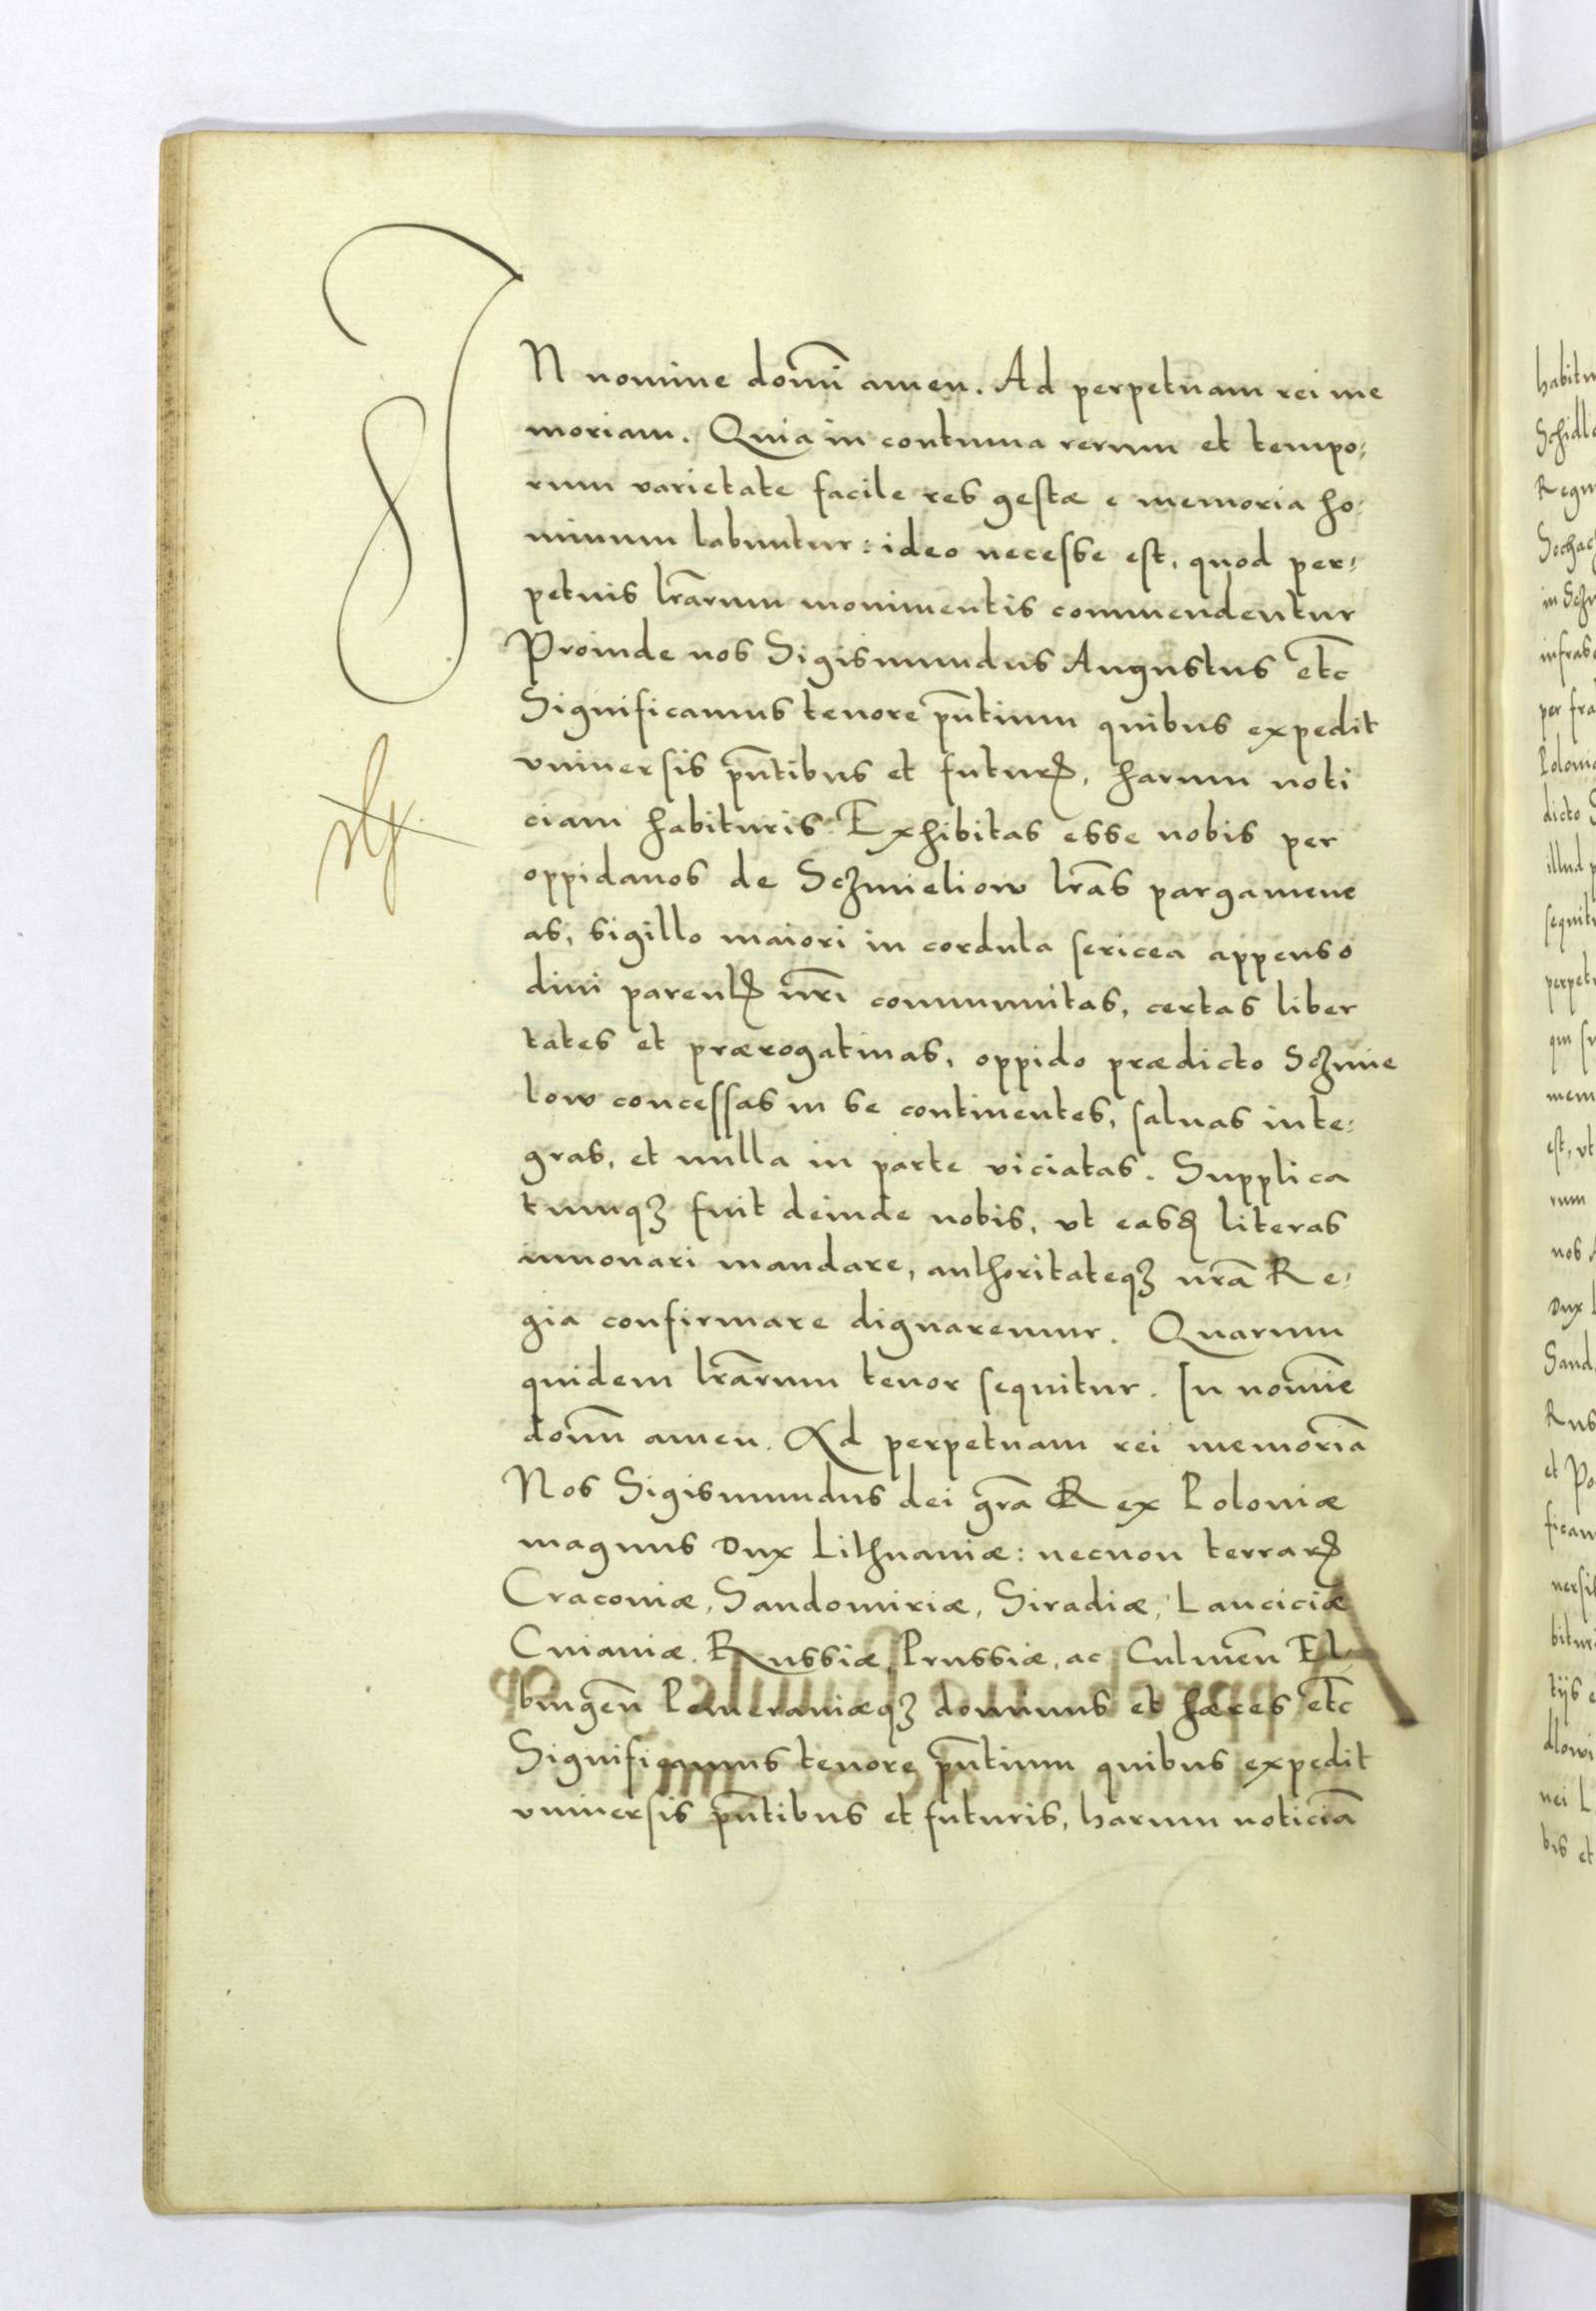 IN nomine domi͂ amen. Ad perpetuam rei me
moriam. Quia in continua rerum et tempo:
rum varietate facile res gestæ e memoria ho:
minum labuntur: ideo necesse est, quod per:
petuis lr͂arum monimentis commendentur
Proinde nos Sigismundus Augustus etc͂
Significamus tenore pn͂tium quibus expedit
vniuersis pn͂tibus et futurꝝ, harum noti
ciam habituris. Exhibitas esse nobis per
oppidanos de Sczmieliow lr͂as pargamene
as, sigillo maiori in cordula sericea appenso
diui parentꝝ nr͂i communitas, certas liber
tates et prærogatiuas, oppido prædicto Sczmie
low concessas in se continentes, saluas inte:
gras, et nulla in parte viciatas. Supplica
tumqꝫ fuit deinde nobis, vt easdꝫ literas
innouari mandare, authoritateqꝫ nr͂a Re:
gia confirmare dignaremur. Quarum
quidem lr͂arum tenor sequitur. In nomi͂e
domi͂ amen. Ad perpetuam rei memoria͂
Nos Sigismundus dei gr͂a Rex Poloniæ
magnus Dux Lithuaniæ: necnon terrarꝝ
Cracouiæ, Sandomiriæ, Siradiæ, Lanciciæ
Cuiauiæ. Russiæ, Prussiæ, ac Culmen͂ El
bingen͂ Pomeraniæqꝫ dominus et hæres etc͂
Significamus tenore pn͂tium quibus expedit
vniuersis pn͂tibus et futuris, harum noticia͂